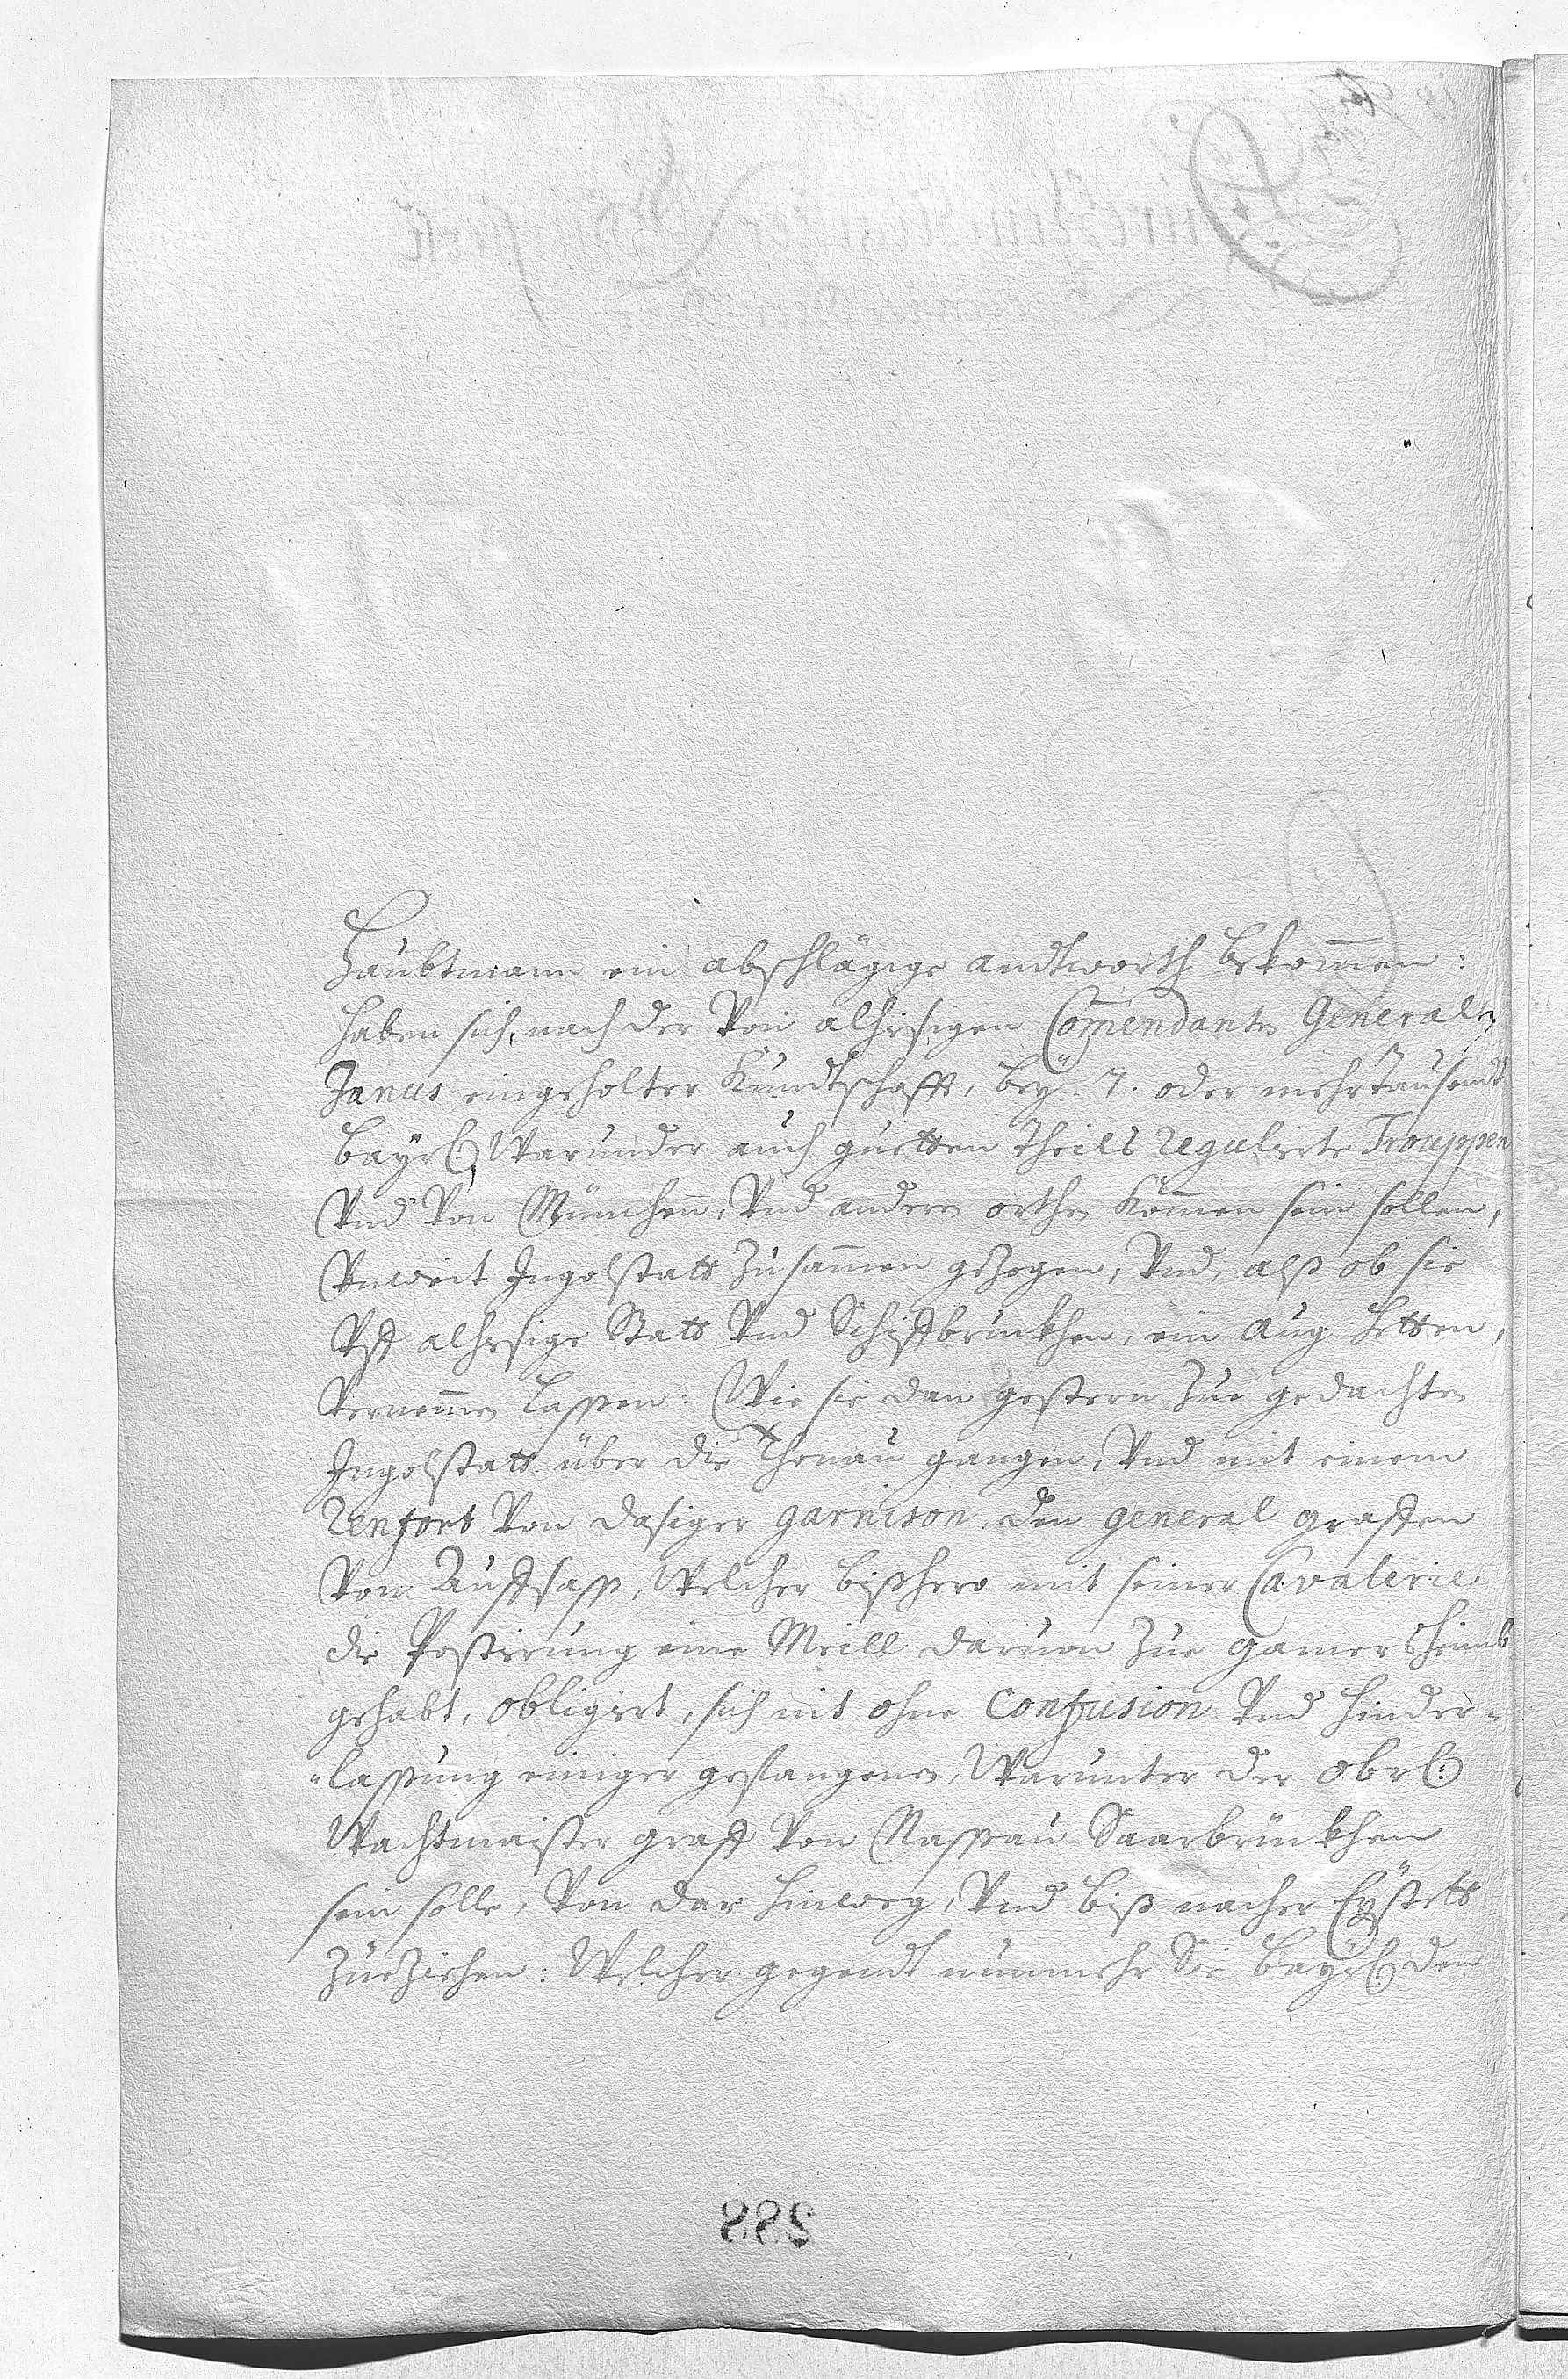 Haubtmann ein abschlägige andtworth bekom̄en:
haben sich, nach der Von alhiesigen Com̄endanten General
Janus eingeholter Kundtschafft, bey. 7. oder mehr tausendt
Bayrl: Warunder auch guetten theils regulirte Trouppen
Vnd Von München, Vnd andern orthen kom̄en sein sollen,
Vnweit Ingolstatt zusam̄en gezogen, Vnd, alß ob sie
Vff alhiesige Statt Vnd Schiffbrückhen, ein aug hetten,
Vernem̄en lassen: Wie sie dan gestern zue gedachten
Ingolstatt über die Thonau gangen, Vnd mit einem
Renfort Von dasiger garnison, den general graffen
Von Auffsaß, Welcher bißhero mit seiner Cavalerie
die Postirung eine Meill daruon zue gamersheimb
gehabt, obligirt, sich nit ohne Confusion Vnd hinder-
-lassung einiger gefangenen, Warunter der obrl:
Wachtmaister graff Von Nassau Saarbrückhen
sein solle, Von dar hinweg, Vnd biß nacher Eystett
zueziehen: Welcher gegendt nunmehr Sie Bayrl: den
288